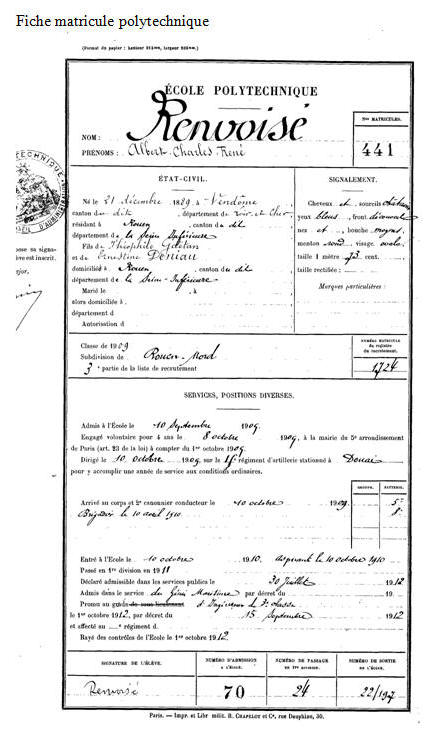 Fiche matricule polytechnique
(Format du papier : hauteur 315mm, largeur 205mm.)
ÉCOLE POLYTECHNIQUE
NOM : Renvoisé
PRÉNOMS : Albert Charles René
Nos MATRICULES.
441
TECHNIQUE
ÉTAT-CIVIL.
Né le 21 décembre 1889, à Vendôme
canton du dit, département de Loir et Cher
résidant à Rouen, canton du dit
département de la Seine Inférieure
Fils de Théophile Gaëtan
et de Ernestine Deniau
domiciliés à Rouen, canton du dit
département de la Seine-Inférieure
Marié le
alors domiciliée à
département d
Autorisation d
SIGNALEMENT.
Cheveux et sourcils châtains
yeux bleus, front découvert
nez et bouche moyens
menton rond, visage ovale,
taille 1 mètre 73 cent.
taille rectifiée :
Marques particulières :
pose sa signa-
ive est inscrit.
ajor,
Classe de 1909
Subdivision de Rouen-Nord
3e partie de la liste de recrutement
NUMÉRO MATRICULE
du registre
du recrutement.
1724
SERVICES, POSITIONS DIVERSES.
Admis à l'École le 10 Septembre 1909.
Engagé volontaire pour 4 ans le 8 octobre 1909, à la mairie du 5e arrondissement
de Paris (art. 23 de la loi) à compter du 1er octobre 1909.
Dirigé le 10 octobre 1909, sur le régiment d'artillerie stationné à Douai
pour y accomplir une année de service aux conditions ordinaires.
GROUPE. BATTERIE.
Arrivé au corps et 2e canonnier conducteur le 10 octobre 1909. 5e
Brigadier le 10 avril 1910. 8e
Entré à l'École le 10 octobre 1910. Aspirant le 10 octobre 1910
Passé en 1re division en 1911
Déclaré admissible dans les services publics le 30 Juillet 1912
Admis dans le service du Génie Maritime par décret du 19 .
Promu au grade de sous-lieutenant d'Ingénieur de 3e classe
le 1er octobre 1912, par décret du 15 Septembre 1912
et affecté au e régiment d.
Rayé des contrôles de l'École le 1er octobre 1912.
SIGNATURE DE L'ÉLÈVE.
Renvoisé
NUMÉRO D'ADMISSION
A L'ÉCOLE.
70
NUMÉRO DE PASSAGE
EN 1re DIVISION.
24
NUMÉRO DE SORTIE
22/197
Paris. — Imp. et Libr milit. R. CHAPELOT et Ce, rue Dauphine, 30.